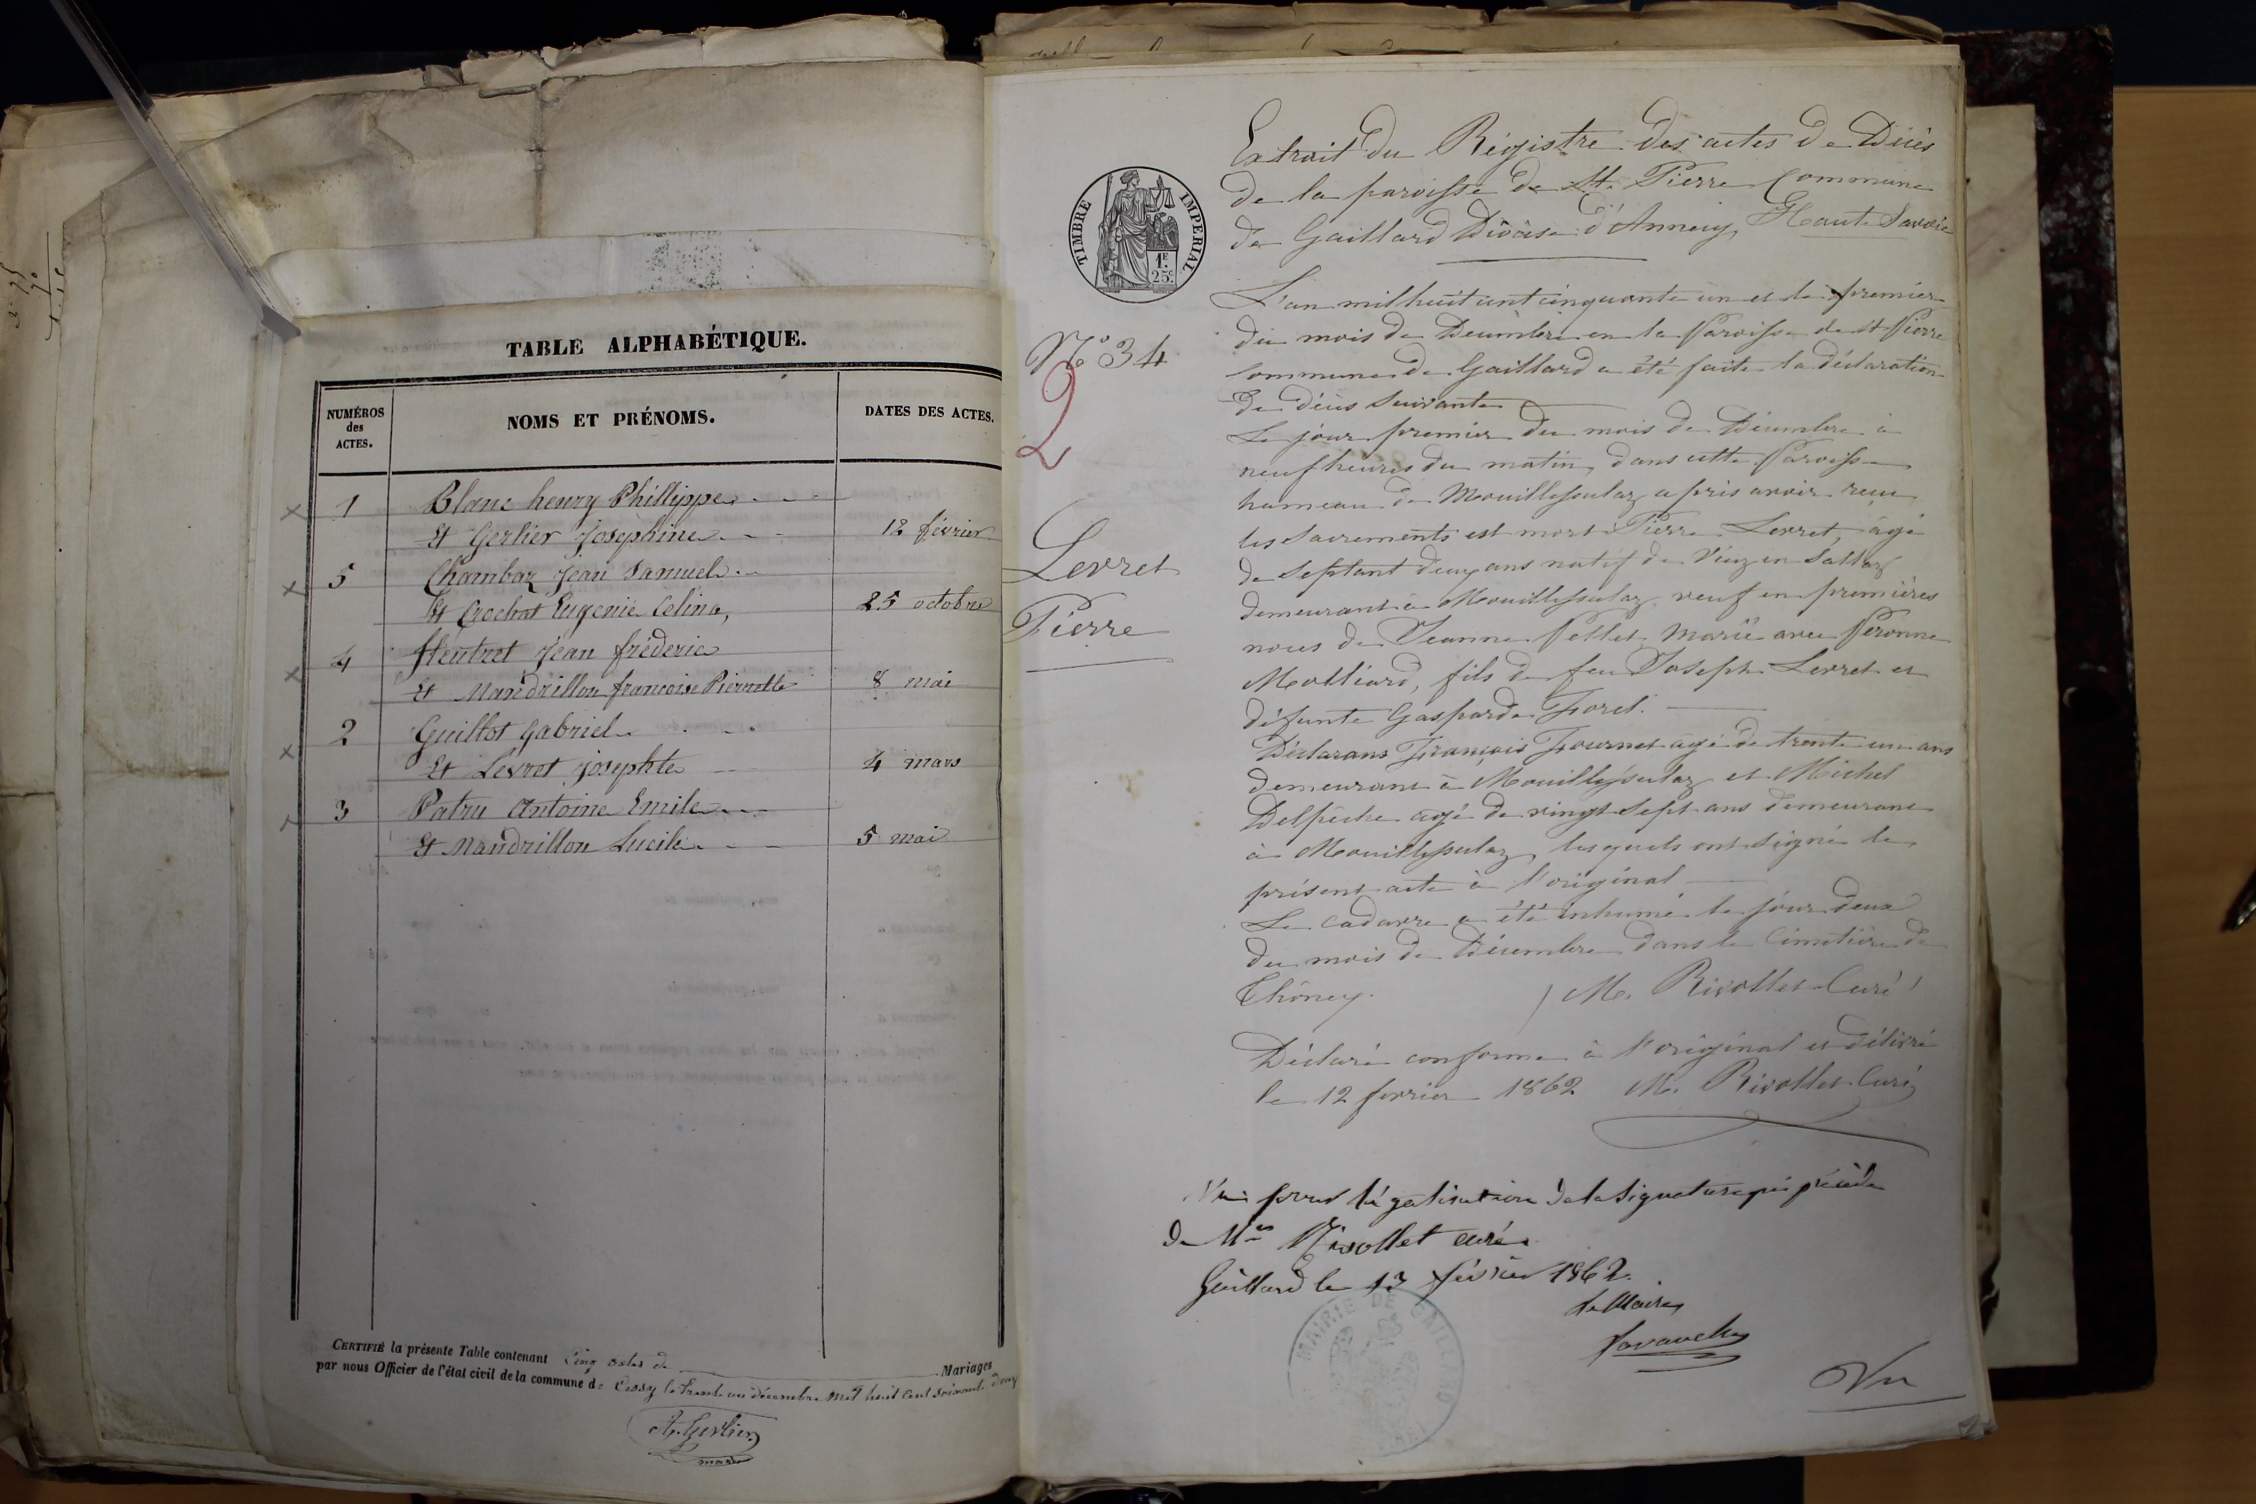 TABLE ALPHABÉTIQUE.
NUMÉROS des ACTES.
NOMS ET PRÉNOMS.
DATES DES ACTES.
1 Blanc henry Phillippe
Et Gerlier Josephine 12 février
5 Chambaz Jean Samuel
Et Crochat Eugenie Celina, 25 octobre
4 Heutret Jean frederic
Et Mandrillon francoise Pierrette 8 mai
2 Guillot Gabriel
Et Levret josephte 4 mars
3 Patru Antoine Emile
Et Mandrillon Lucile 5 mai
CERTIFIÉ la présente Table contenant Cinq actes de Mariages
par nous Officier de l'état civil de la commune de Crosy le trente un décembre mil huit cent soixante deux
A. Gerlier
maire
TIMBRE IMPERIAL
1F. 25c
N° 34
2
Levret
Pierre
Extrait du Régistre des actes de Décès
de la paroisse de St. Pierre Commune
de Gaillard Diocèse d'Annecy, Haute Savoie
L'an mil huit cent cinquante un et le premier
du mois de Decembre en la Paroisse de St Pierre
commune de Gaillard a été faite la déclaration
de décès suivante
Le jour premier du mois de Décembre à
neuf heures du matin, dans cette Paroisse
hameau de Mouillesulaz après avoir reçu
les Sacrements est mort Pierre Levret, âgé
de Septant deux ans natif de Viuz en Sallaz
demeurant à Mouillesulaz veuf en premières
noces de Jeanne Pellet, Marié avec Peronne
Molliard, fils de feu Joseph Levret et
défunte Gasparde Forel.
Déclarans François Fournet agé de trente un ans
demeurant à Mouillesulaz et Michel
Delpèche agé de vingt Sept ans demeurant
à Mouillesulaz, lesquels ont Signé le
présent acte à l'original
Le cadavre a été inhumé le jour deux
du mois de Décembre dans le Cimetière de
Thôney. M. Rivollet Curé
Déclaré conforme à l'original et délivré
le 12 fevrier 1862 M. Rivollet Curé
Vu pour légalisation de la Signature qui précède
de Mre Rivollet curé
Gaillard le 13 février 1862.
Le Maire
MAIRIE DE GAILLARD
Vu